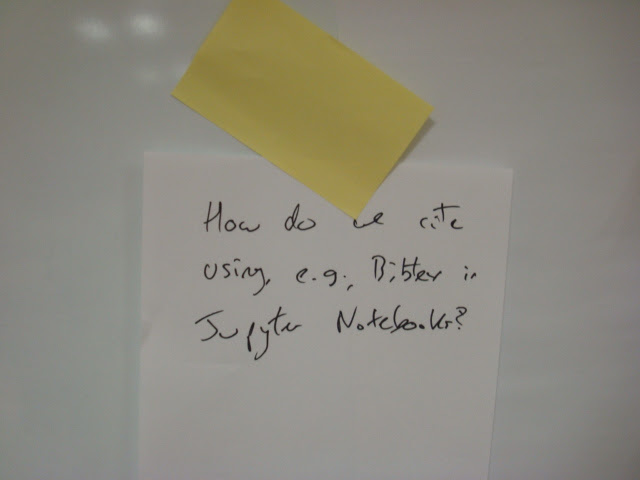 How do we cite
using, e.g., Bibtex in
Jupyter Notebooks?